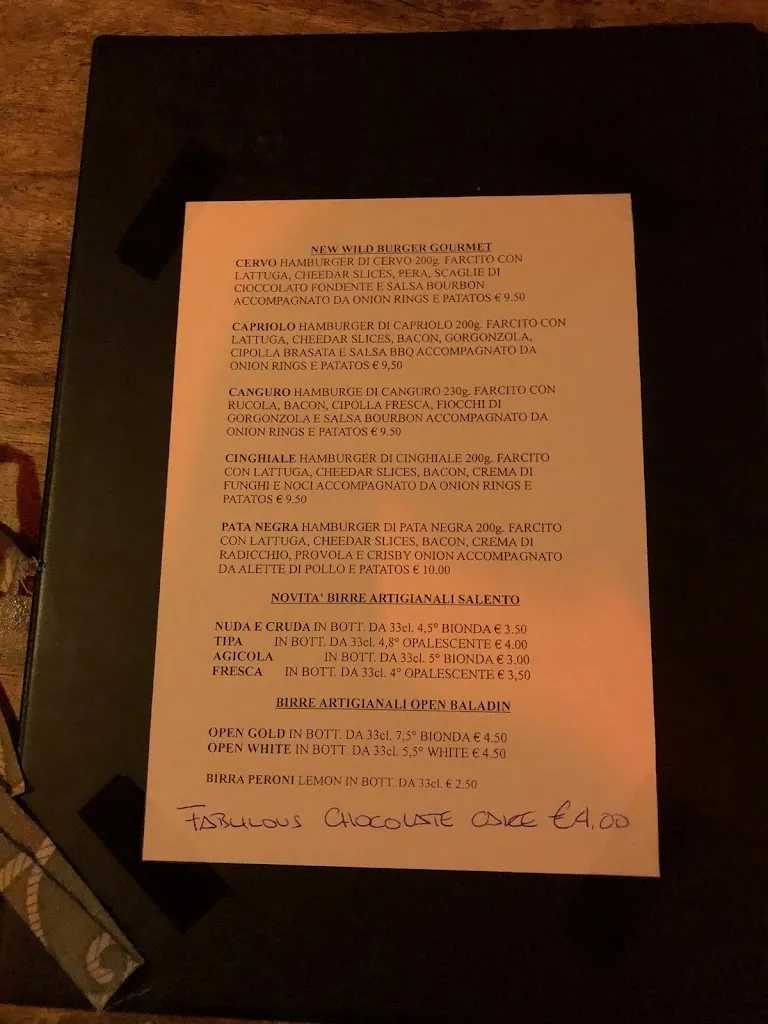 NEW WILD BURGER GOURMET
CERVO HAMBURGER DI CERVO 200g. FARCITO CON
LATTUGA, CHEEDAR SLICES, PERA, SCAGLIE DI
CIOCCOLATO FONDENTE E SALSA BOURBON
ACCOMPAGNATO DA ONION RINGS E PATATOS € 9.50
CAPRIOLO HAMBURGER DI CAPRIOLO 200g. FARCITO CON
LATTUGA, CHEEDAR SLICES, BACON, GORGONZOLA,
CIPOLLA BRASATA E SALSA BBQ ACCOMPAGNATO DA
ONION RINGS E PATATOS € 9,50
CANGURO HAMBURGE DI CANGURO 230g. FARCITO CON
RUCOLA, BACON, CIPOLLA FRESCA, FIOCCHI DI
GORGONZOLA E SALSA BOURBON ACCOMPAGNATO DA
ONION RINGS E PATATOS € 9.50
CINGHIALE HAMBURGER DI CINGHIALE 200g. FARCITO
CON LATTUGA, CHEEDAR SLICES, BACON, CREMA DI
FUNGHI E NOCI ACCOMPAGNATO DA ONION RINGS E
PATATOS € 9.50
PATA NEGRA HAMBURGER DI PATA NEGRA 200g. FARCITO
CON LATTUGA, CHEEDAR SLICES, BACON, CREMA DI
RADICCHIO, PROVOLA E CRISBY ONION ACCOMPAGNATO
DA ALETTE DI POLLO E PATATOS € 10.00
NOVITA' BIRRE ARTIGIANALI SALENTO
NUDA E CRUDA IN BOTT. DA 33cl. 4,5° BIONDA € 3.50
TIPA IN BOTT. DA 33cl. 4,8° OPALESCENTE € 4.00
AGICOLA IN BOTT. DA 33cl. 5° BIONDA € 3.00
FRESCA IN BOTT. DA 33cl. 4° OPALESCENTE € 3,50
BIRRE ARTIGIANALI OPEN BALADIN
OPEN GOLD IN BOTT. DA 33cl. 7,5° BIONDA € 4.50
OPEN WHITE IN BOTT. DA 33cl. 5,5° WHITE € 4.50
BIRRA PERONI LEMON IN BOTT. DA 33cl. € 2.50
FABULOUS CHOCOLATE CAKE €4.00